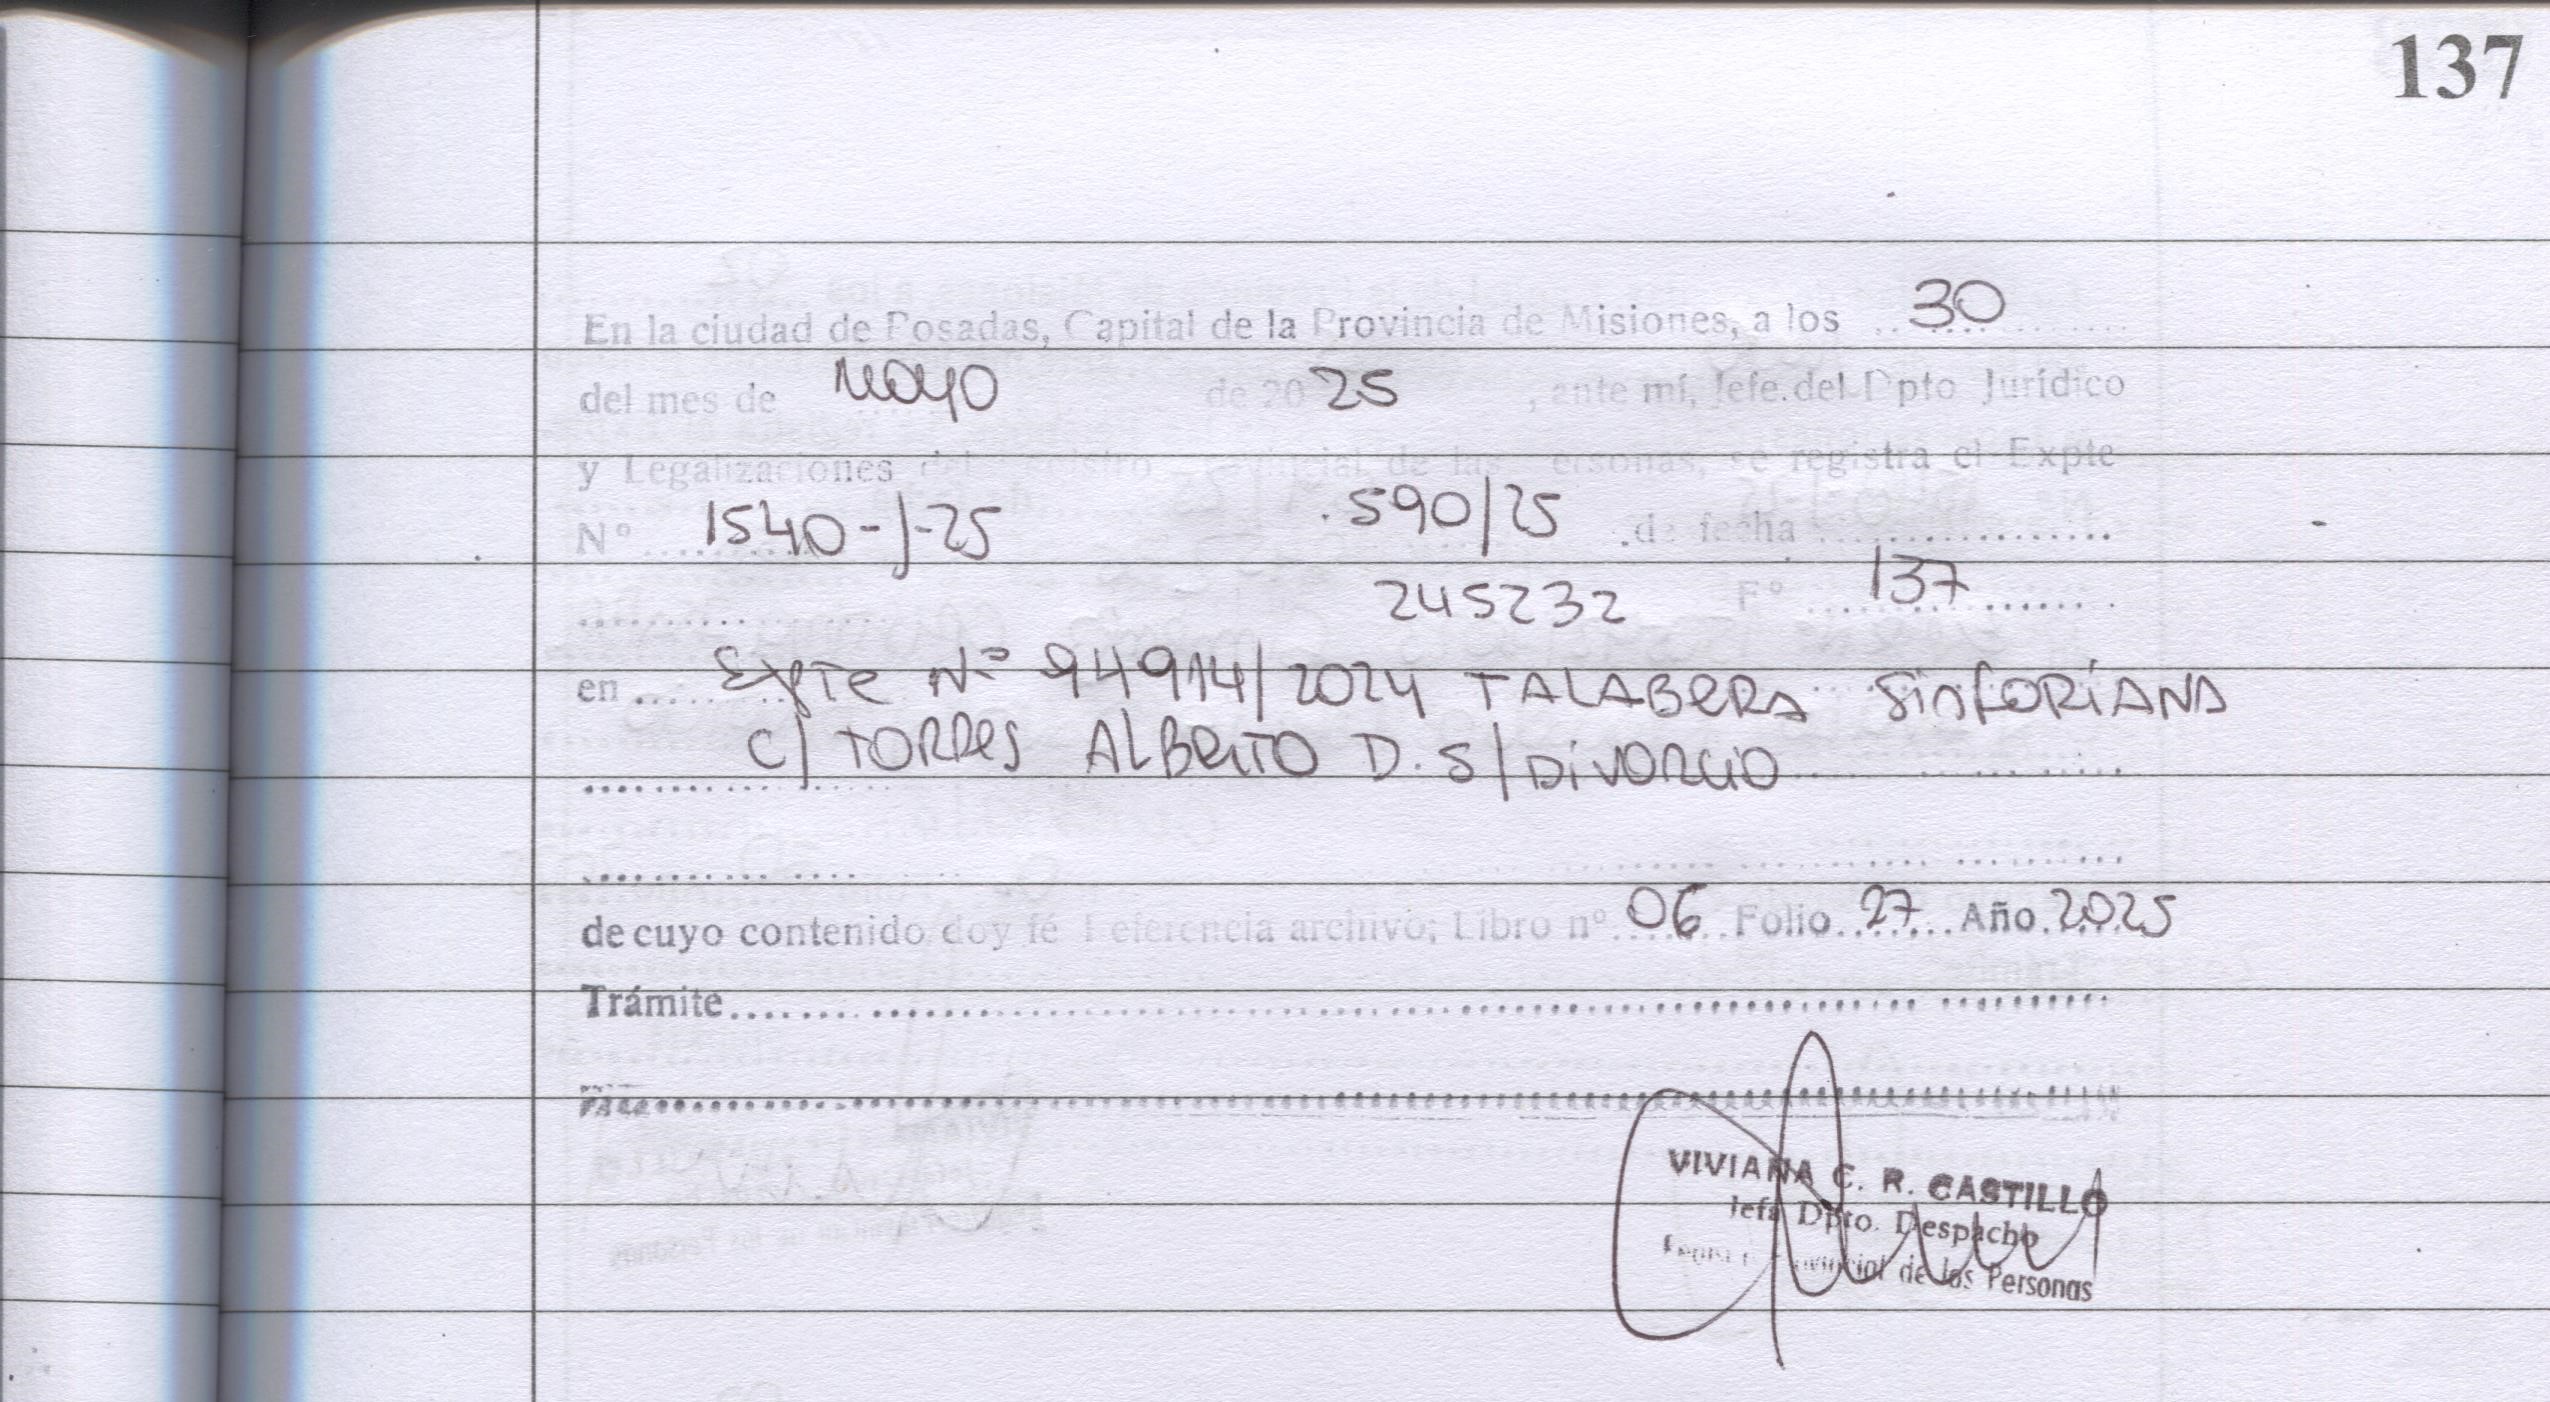 137
En la ciudad de Posadas, Capital de la Provincia de Misiones, a los 30
del mes de Mayo de 20 25, ante mí, Jefe del Dpto Jurídico
y Legalizaciones del Registro Provincial de las Personas, se registra el Expte
Nº 1540-J-25 590/25 de fecha
245232 Fº 137
en Expte Nº 94914/2024 TALABERA SINFORIANA
c/ TORRES ALBERTO D. S/ DIVORCIO
de cuyo contenido doy fé Referencia archivo; Libro nº 06 Folio 27 Año 2025
Trámite
VIVIANA C. R. CASTILLO
Jefa Dpto. Despacho
Registro Provincial de las Personas